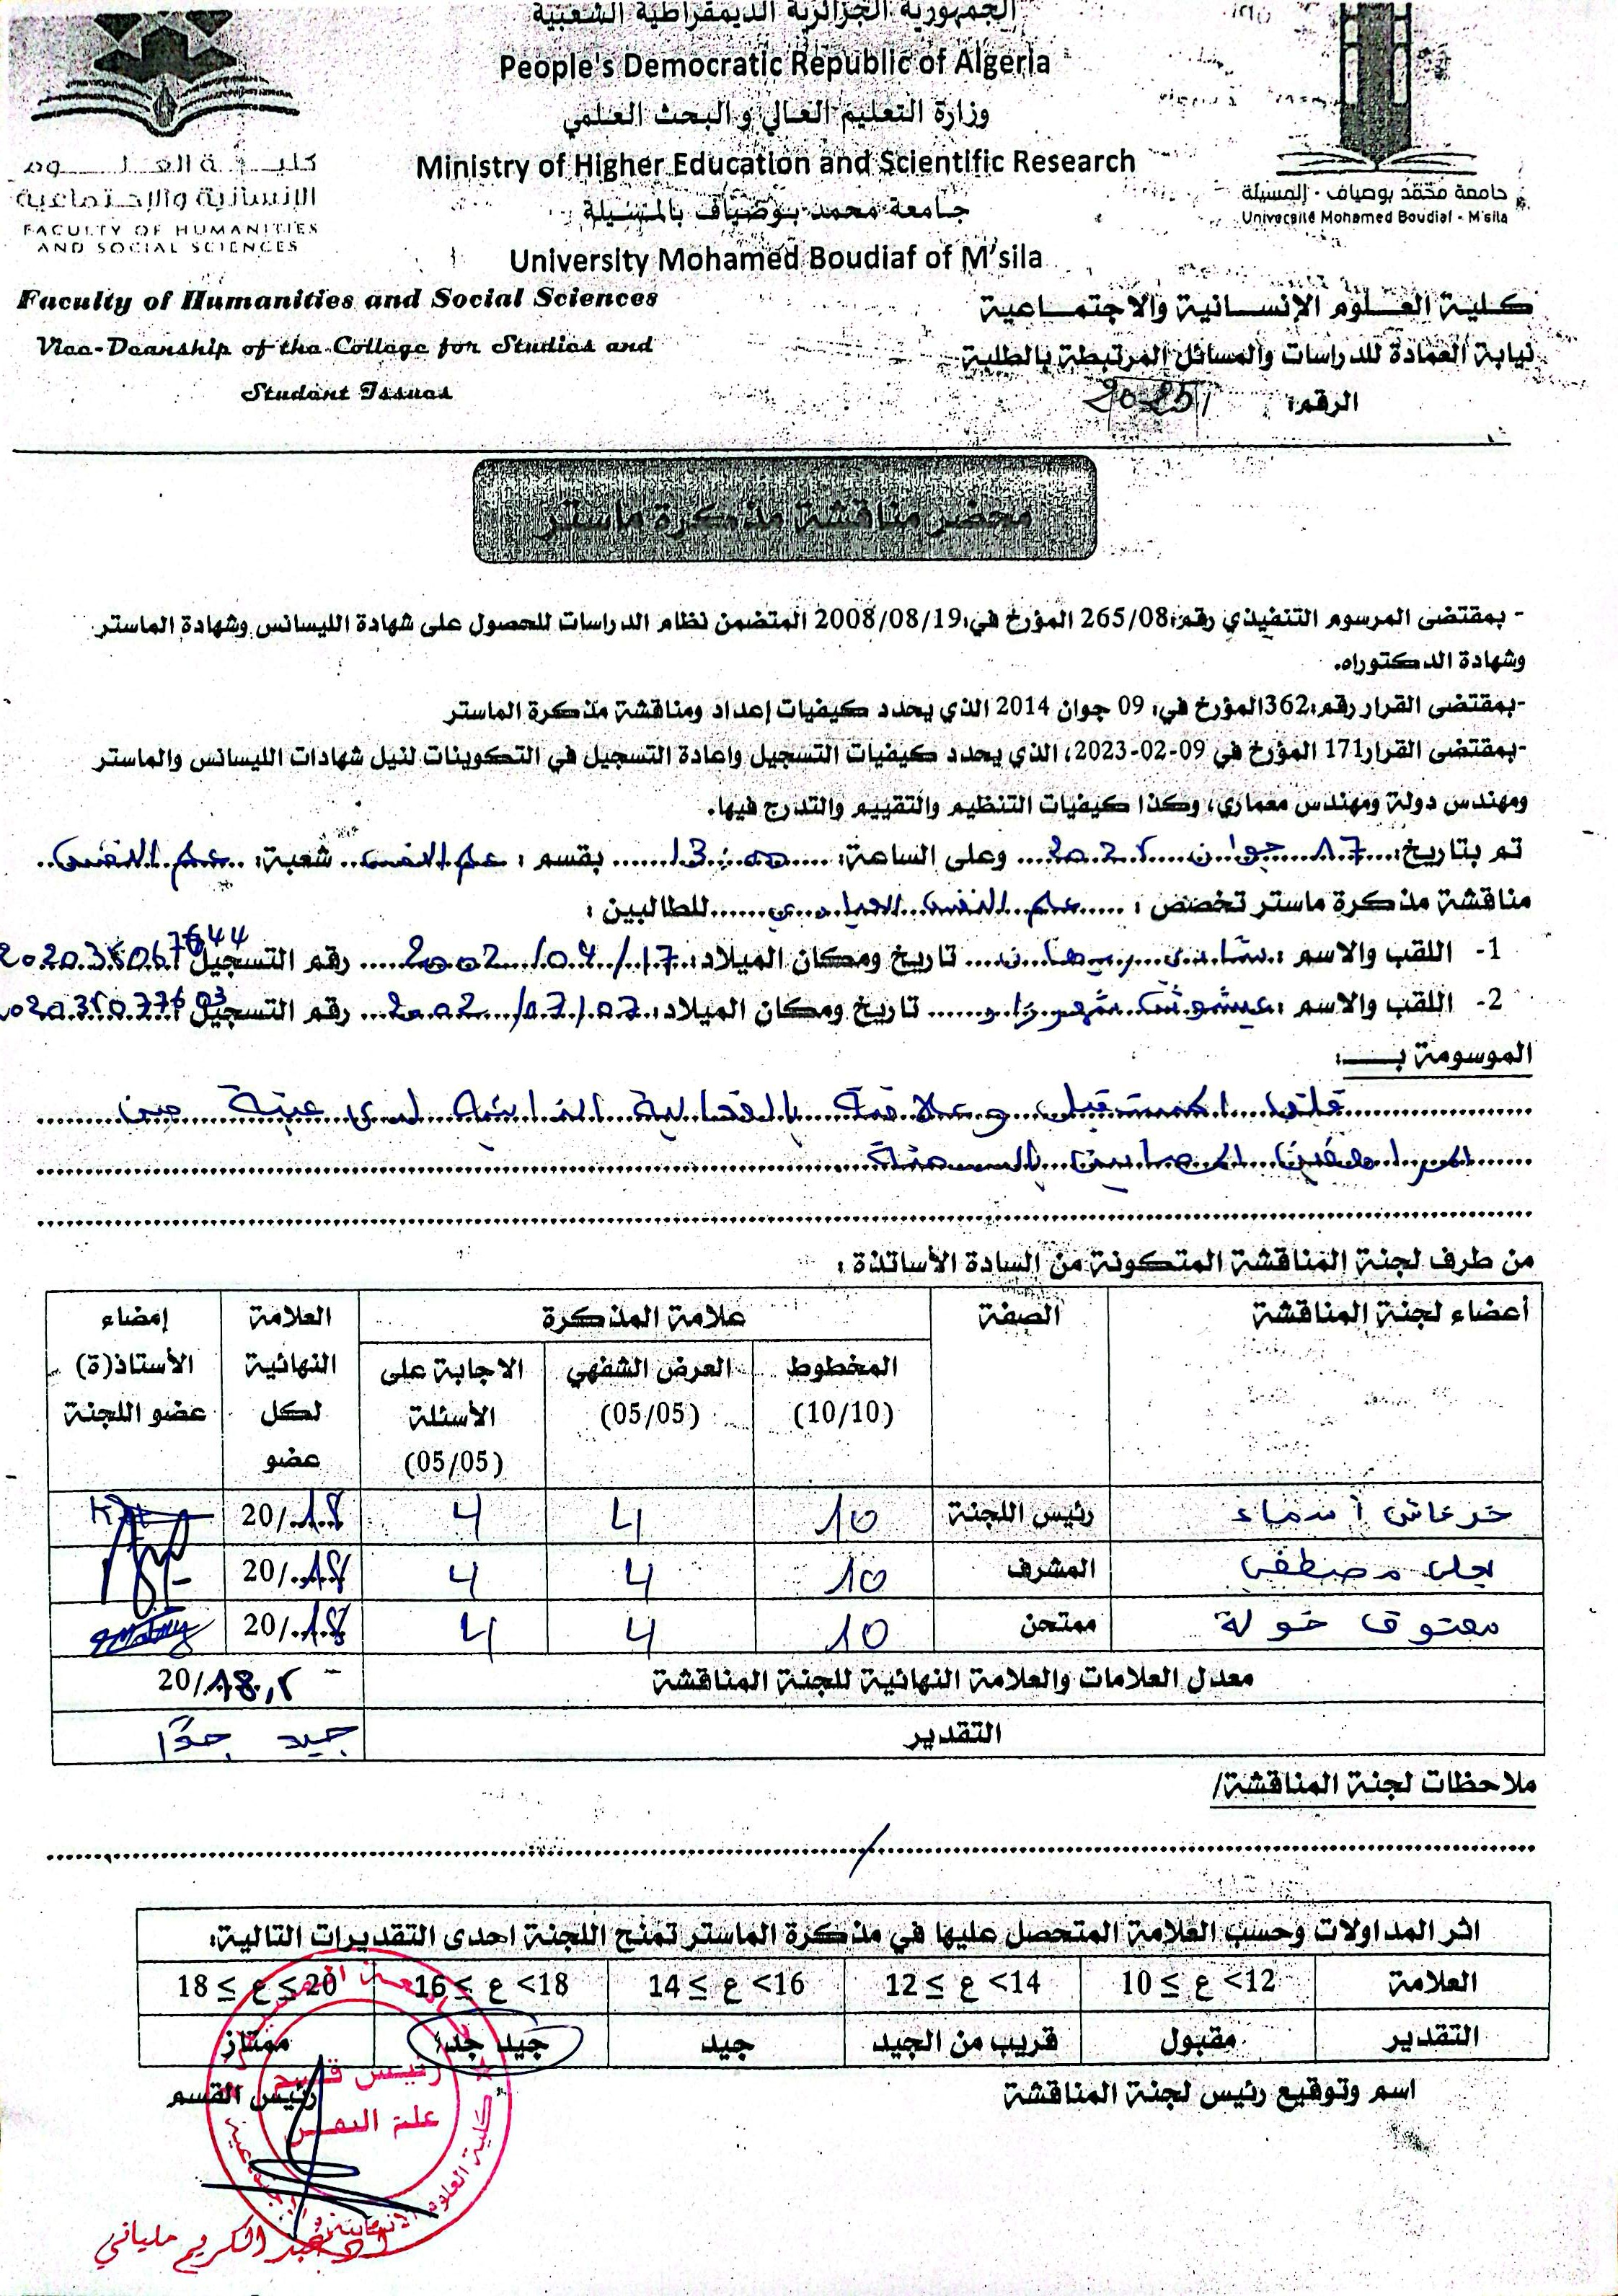 الجمهورية الجزائرية الديمقراطية الشعبية
People's Democratic Republic of Algeria
وزارة التعليم العالي والبحث العلمي
Ministry of Higher Education and Scientific Research
جامعة محمد بوضياف بالمسيلة
University Mohamed Boudiaf of M'sila
كليـة العلـوم
الإنسانية والاجتماعية
FACULTY OF HUMANITIES
AND SOCIAL SCIENCES
جامعة محمد بوضياف - المسيلة
Université Mohamed Boudiaf - M'sila
Faculty of Humanities and Social Sciences
Vice-Deanship of the College for Studies and
Student Issues
كليـة العلـوم الإنسـانية والاجتمـاعية
نيابة العمادة للدراسات والمسائل المرتبطة بالطلبة
الرقم: /2025
محضر مناقشة مذكرة ماستر
- بمقتضى المرسوم التنفيذي رقم:265/08 المؤرخ في:2008/08/19 المتضمن نظام الدراسات للحصول على شهادة الليسانس وشهادة الماستر
وشهادة الدكتوراه.
-بمقتضى القرار رقم:362المؤرخ في: 09 جوان 2014 الذي يحدد كيفيات إعداد ومناقشة مذكرة الماستر
-بمقتضى القرار171 المؤرخ في 09-02-2023، الذي يحدد كيفيات التسجيل واعادة التسجيل في التكوينات لنيل شهادات الليسانس والماستر
ومهندس دولة ومهندس معماري، وكذا كيفيات التنظيم والتقييم والتدرج فيها.
تم بتاريخ: جوان وعلى الساعة: 13:00 بقسم : علم النفس شعبة: علم النفس
مناقشة مذكرة ماستر تخصص : علم النفس العيادي للطالبين :
1- اللقب والاسم : تاريخ ومكان الميلاد: 2002 رقم التسجيل
2- اللقب والاسم : تاريخ ومكان الميلاد: 2002/07/07 رقم التسجيل
الموسومة بـــ:
قلق المستقبل وعلاقته بالفعالية الذاتية لدى عينة من
المراهقين المصابين بالسمنة
من طرف لجنة المناقشة المتكونة من السادة الأساتذة :
أعضاء لجنة المناقشة الصفة علامة المذكرة العلامة النهائية لكل عضو إمضاء الأستاذ(ة) عضو اللجنة
المخطوط (10/10) العرض الشفهي (05/05) الاجابة على الأسئلة (05/05)
خرخاش أسماء رئيس اللجنة 10 4 4 18/20
مصطفى المشرف 10 4 4 18/20
معتوق خولة ممتحن 10 4 4 18/20
معدل العلامات والعلامة النهائية للجنة المناقشة 20/
التقدير جيد جدا
ملاحظات لجنة المناقشة/
/
اثر المداولات وحسب العلامة المتحصل عليها في مذكرة الماستر تمنح اللجنة احدى التقديرات التالية:
العلامة 10 ≤ ع <12 12 ≤ ع <14 14 ≤ ع <16 16 ≤ ع <18 18 ≤ ع ≤ 20
التقدير مقبول قريب من الجيد جيد جيد جدا ممتاز
اسم وتوقيع رئيس لجنة المناقشة
رئيس القسم
رئيس قسم
علم النفس
أ.د. عبد الكريم ملياني